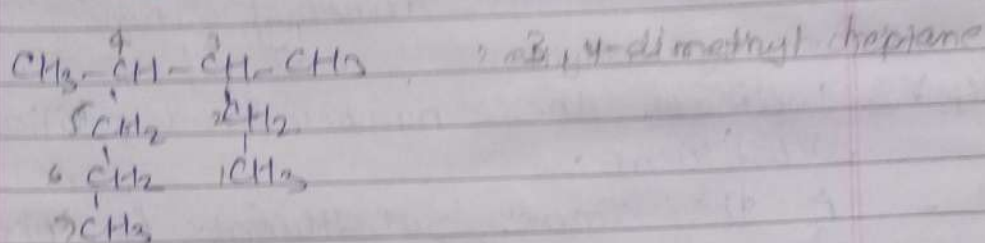 4 3
CH3-CH-CH-CH3 3,4-dimethyl heptane
5CH2 2CH2
6 CH2 1CH3
7CH3